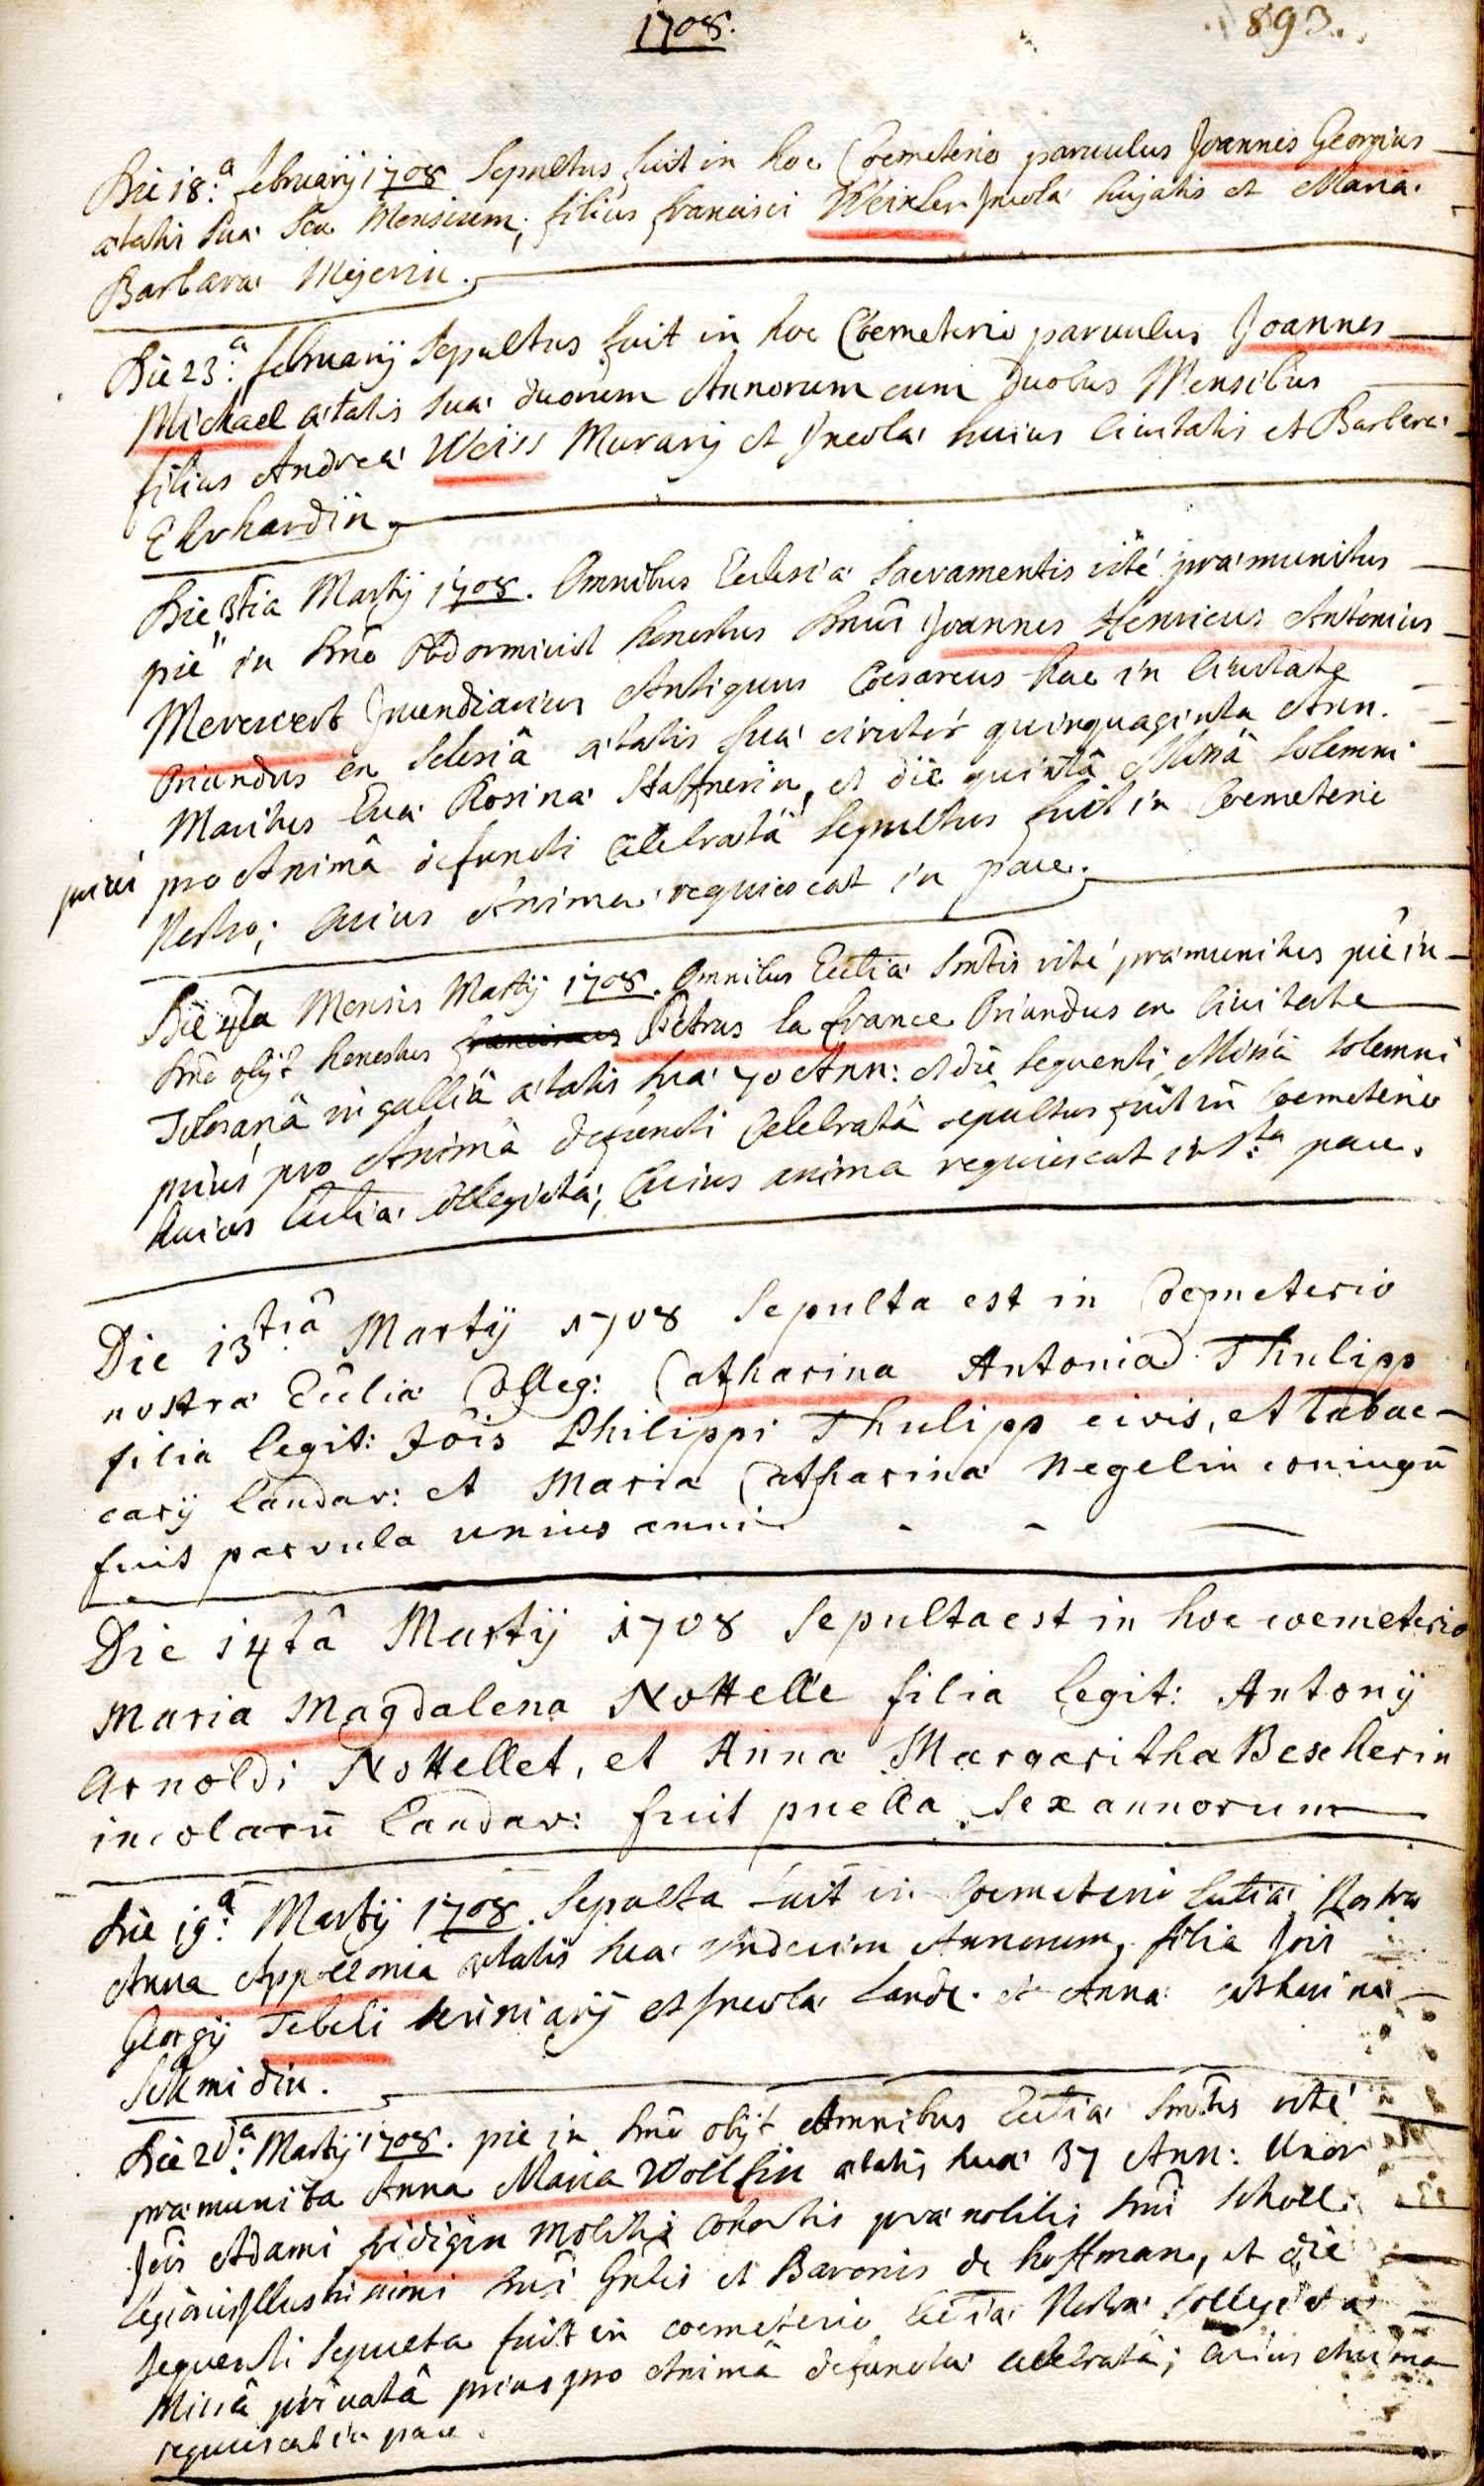 1708.
893.
Die 18.a february 1708 Sepultus fuit in hoc Coemeterio paruulus Joannes Georgius
ætatis suæ sex Mensium, filius francisci Weixler Jncolæ hujatis et Mariæ
Barbaræ Mejerin.
Die 23.a februarij Sepultus fuit in hoc Coemeterio paruulus Joannes
Michael ætatis suæ duorum Annorum cum duobus Mensibus
filius Andreæ Weiss Murarij et Jncolæ huius Ciuitatis et Barbaræ
Ehrhardin.
Die 3tia Martij 1708. Omnibus Ecclesiæ Sacramentis rité præmunitus
pié in Dno Obdormiuit honestus Dnus Joannes Henricus Antonius
Antiquus Cæsareus hac in Ciuitate
Oriundus ex Silesiâ ætatis suæ circiter quinquaginta Ann.
Maritus Euæ Rosinæ Hafnerin, et die quintâ Missâ solemni
priùs pro Animâ defuncti Celebratâ sepultus fuit in Coemeterio
Nostro; Cuius Anima requiescat in pace.
Die 4ta Mensis Martij 1708. Omnibus Eccliæ Smtis rité præmunitus pié in
Dno obijt honestus Petrus la france Oriundus ex Ciuitate
Tolosanâ in galliâ ætatis suæ 70 Ann: et die sequenti Missâ solemni
priùs pro Animâ defuncti Celebratâ sepultus fuit in Coemeterio
huius Eccliæ Collegiatæ; Cuius anima requiescat in S:ta pace.
Die 13.tiâ Martij 1708 Sepulta est in Coemeterio
nostræ Eccliæ Colleg: Catharina Antonia Thulipp
filia legit: Jois Philippi Thulipp civis, et Tabac-
carij Landav: et Mariæ Catharinæ Negelin coniugū
fuit parvula unius anni
Die 14tâ Martij 1708 Sepulta est in hoc coemeterio
Maria Magdalena Nottelle filia legit: Antonij
Arnoldi Nottellet, et Annæ Margarithæ Bescherin
incolarū Landav: fuit puella sex annorum
Die 19.a Martij 1708. Sepulta fuit in Coemeterio Eccliæ Nostræ
Anna Appollonia ætatis suæ Vndecim Annorum, filia Jois
Georgij Tebeli scriniarij et Jncolæ Landa. et Annæ catharinæ
Schmidin.
Die Martij 1708. pie in Dno obijt Omnibus Eccliæ Smtis rité
præmunita Anna Maria Wollfin ætatis suæ 37 Ann: Vxor
Jois Adami fridigin Militis Cohortis prænobilis Dni Scholl
legionis Jllustrissimi Dni Gnlis et Baronis de hoffman, et die
sequenti sepulta fuit in coemeterio Eccliæ Nostræ Collegiatæ
Missâ priuatâ prius pro Animâ defunctæ celebratâ; cuius Anima
requiescat in pace.